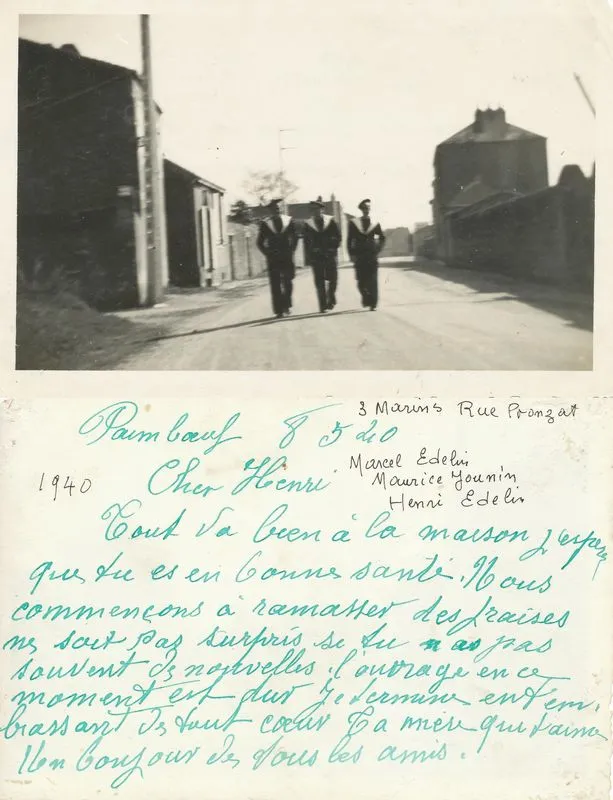 3 Marins Rue Pronzat
Paimboeuf 8 5 40
Marcel Edelin
Maurice Jounin
Henri Edelin
1940
Cher Henri
Tout va bien à la maison j'espère
que tu es en bonne santé. Nous
commençons à ramasser des fraises
ne soit pas surpris si tu n as pas
souvent de nouvelles. l'ouvrage en ce
moment est dur Je termine en t'em
brassant de tout cœur Ta mère qui t'aime
Un bonjour de tous les amis.